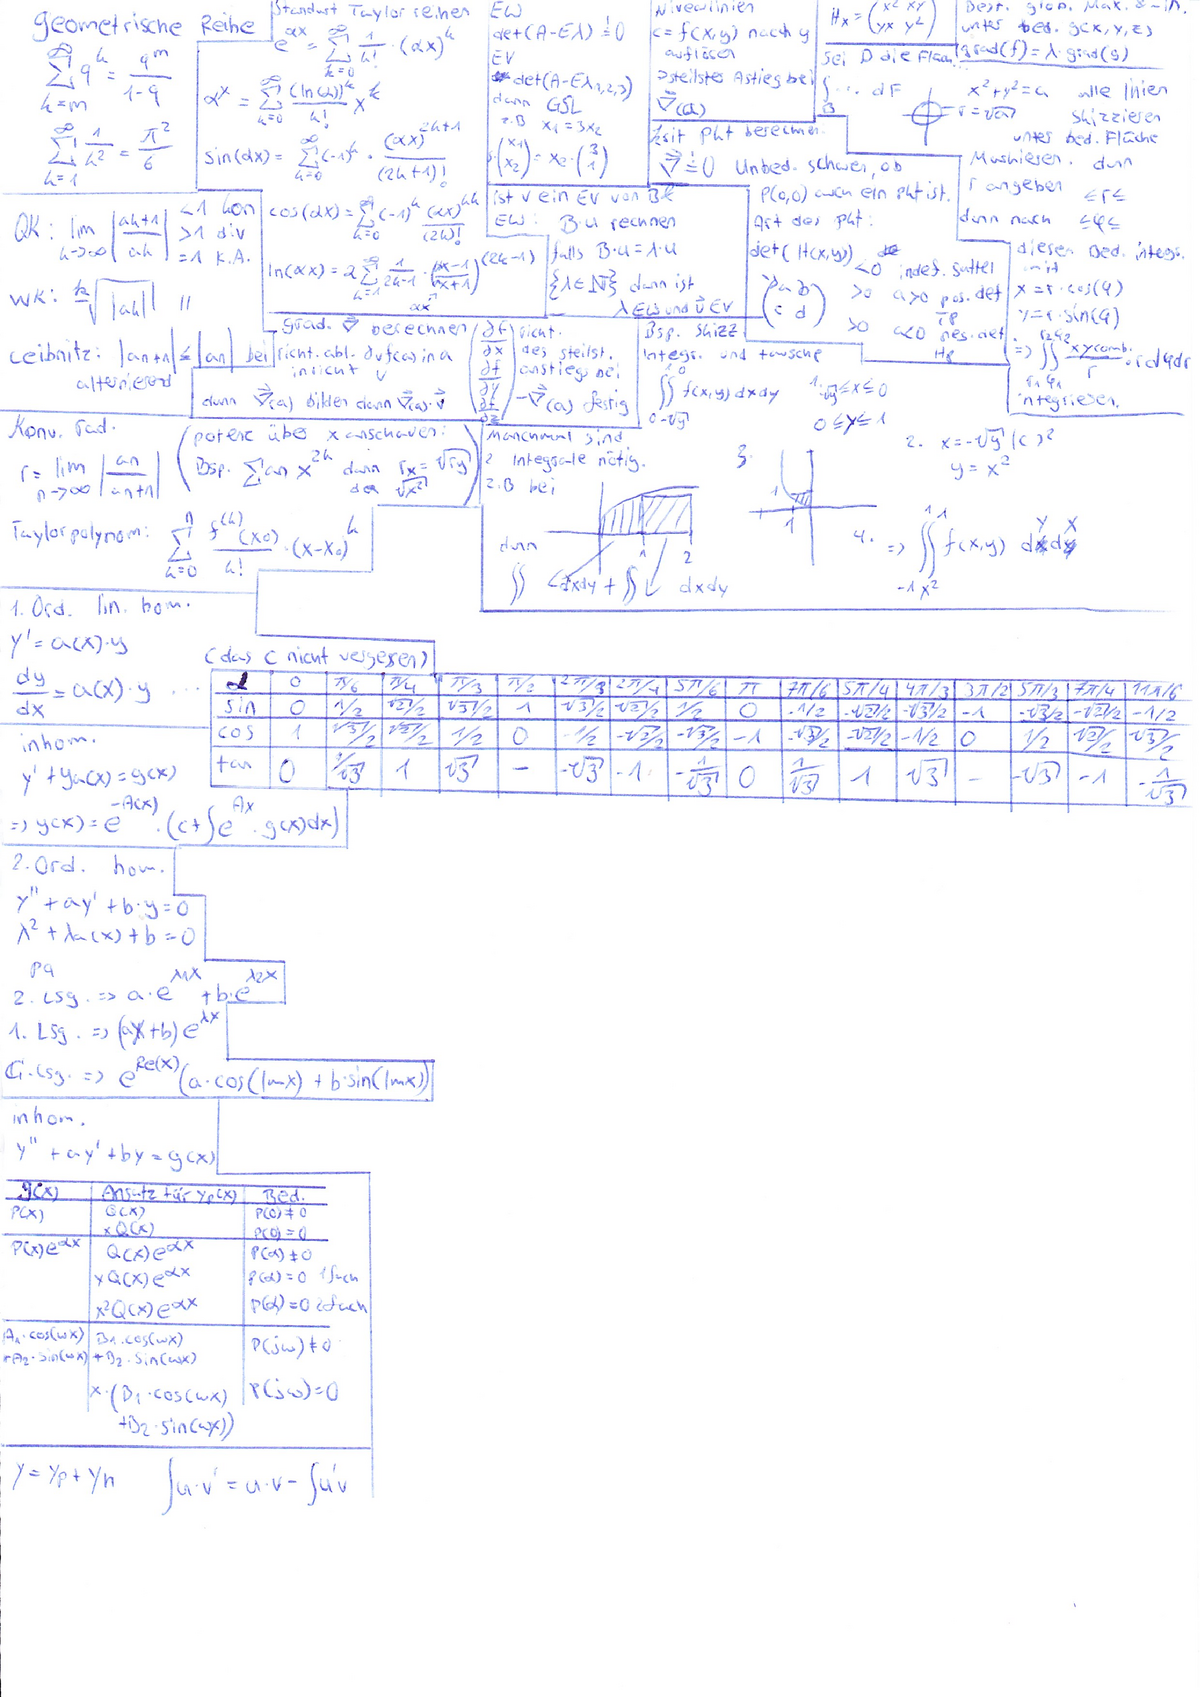 geometrische Reihe
∞∑k=m q^k = q^m / 1-q
∞∑k=1 1/k² = π²/6
Standart Taylorreihen
e^αx = ∞∑k=0 1/k! · (αx)^k
α^x = ∞∑k=0 (ln(α))^k / k! x^k
sin(αx) = ∞∑k=0 (-1)^k · (αx)^2k+1 / (2k+1)!
cos(αx) = ∞∑k=0 (-1)^k (αx)^2k / (2k)!
QK: lim k->∞ |ak+1 / ak| <1 kon
>1 div
=1 K.A.
WK: k√|ak| "
Leibnitz: |an+1| ≤ |an| bei
alternierend
EW
det(A-Eλ) != 0
EV
det(A-Eλ1,2,3)
dann GSL
z.B x1 = 3x2
(x1 x2) = x2 · (3 1)
ist v ein EV von B &
EW: B·u rechnen
falls B·u = λ·u
{λ∈N} dann ist
λ EW und v EV
Niveaulinien
c = f(x,y) nach y
auflösen
=> steilste Astieg bei
∇(a)
krit pkt berechnen.
∇ != 0 Unbed. schauen, ob
P(0,0) auch ein pkt ist.
Art des pkt:
det(H(x,y))
<0 indef. Sattel
(a b c d) >0 a>0 pos. def
TP
>0 a<0 neg. def.
HP
Hx = (x² xy yx y²)
Best. glob. Max. & Min.
unter bed. g(x,y,z)
grad(f) = λ·grad(g)
Sei D die Fläch.
∫B ... dF
x²+y² = a alle linien
r = √a skizzieren
unter bed. Fläche
Maskieren. dann
r angeben ≤r≤
dann nach ≤φ≤
diesen Bed. integr.
mit
x = r·cos(φ)
y = r·sin(φ)
=> ∫∫ xycomb. / r · r dφdr
integrieren.
Grad. ∇ berechnen
richt. abl.
in richt v
dann ∇(a) bilden dann ∇(a)·v
(∂f/∂x ∂f/∂y ∂f/∂z)
richt.
des steilst.
anstiegs bei
-∇(a) fertig
Bsp. Skizz
Integr. und tausche
∫∫ f(x,y) dxdy
1. -√y ≤ x ≤ 0
0 ≤ y ≤ 1
2. x = -√y |( )²
y = x²
3.
1
1
4. => ∫∫ f(x,y) dydx
-1 x²
Konv. rad.
r = lim n->∞ |an / an+1|
(potenz über x anschauen:
Bsp. ∑ an x^2k dann rx = √ry
der √x²)
Manchmal sind
2 Integrale nötig.
z.B bei
1 2
dann
∫∫ dxdy + ∫∫ dxdy
Taylorpolynom: n∑k=0 f^(k)(x0) / k! · (x-x0)^k
1. Ord. lin. hom.
y' = a(x)·y
dy/dx = a(x)·y ...
(das c nicht vergessen)
α 0 π/6 π/4 π/3 π/2 2π/3 2π/4 5π/6 π 7π/6 5π/4 4π/3 3π/2 5π/3 7π/4 11π/6
sin 0 1/2 √2/2 √3/2 1 √3/2 √2/2 1/2 0 -1/2 -√2/2 -√3/2 -1 -√3/2 -√2/2 -1/2
cos 1 √3/2 √2/2 1/2 0 -1/2 -√2/2 -√3/2 -1 -√3/2 -√2/2 -1/2 0 1/2 √2/2 √3/2
tan 0 1/√3 1 √3 - -√3 -1 -1/√3 0 1/√3 1 √3 - -√3 -1 -1/√3
inhom.
y' + ya(x) = g(x)
=> y(x) = e^-A(x) · (c+∫e^Ax · g(x)dx)
2. Ord. hom.
y'' + ay' + b·y = 0
λ² + λa(x) + b = 0
pq
2. Lsg. => a·e^λ1x + b·e^λ2x
1. Lsg. => (ax+b)e^λx
C-Lsg. => e^Re(x) (a·cos(Imx) + b·sin(Imx))
inhom.
y'' + ay' + by = g(x)
g(x) Ansatz für yp(x) Bed.
P(x) Q(x) P(0) ≠ 0
xQ(x) P(0) = 0
P(x)e^αx Q(x)e^αx P(α) ≠ 0
xQ(x)e^αx P(α) = 0 1fach
x²Q(x)e^αx P(α) = 0 2fach
A1·cos(wx) B1·cos(wx) P(jω) ≠ 0
+A2·sin(wx) +B2·sin(wx)
x·(B1·cos(wx) P(jω) = 0
+B2·sin(wx))
y = yp + yh ∫u·v' = u·v - ∫u'v